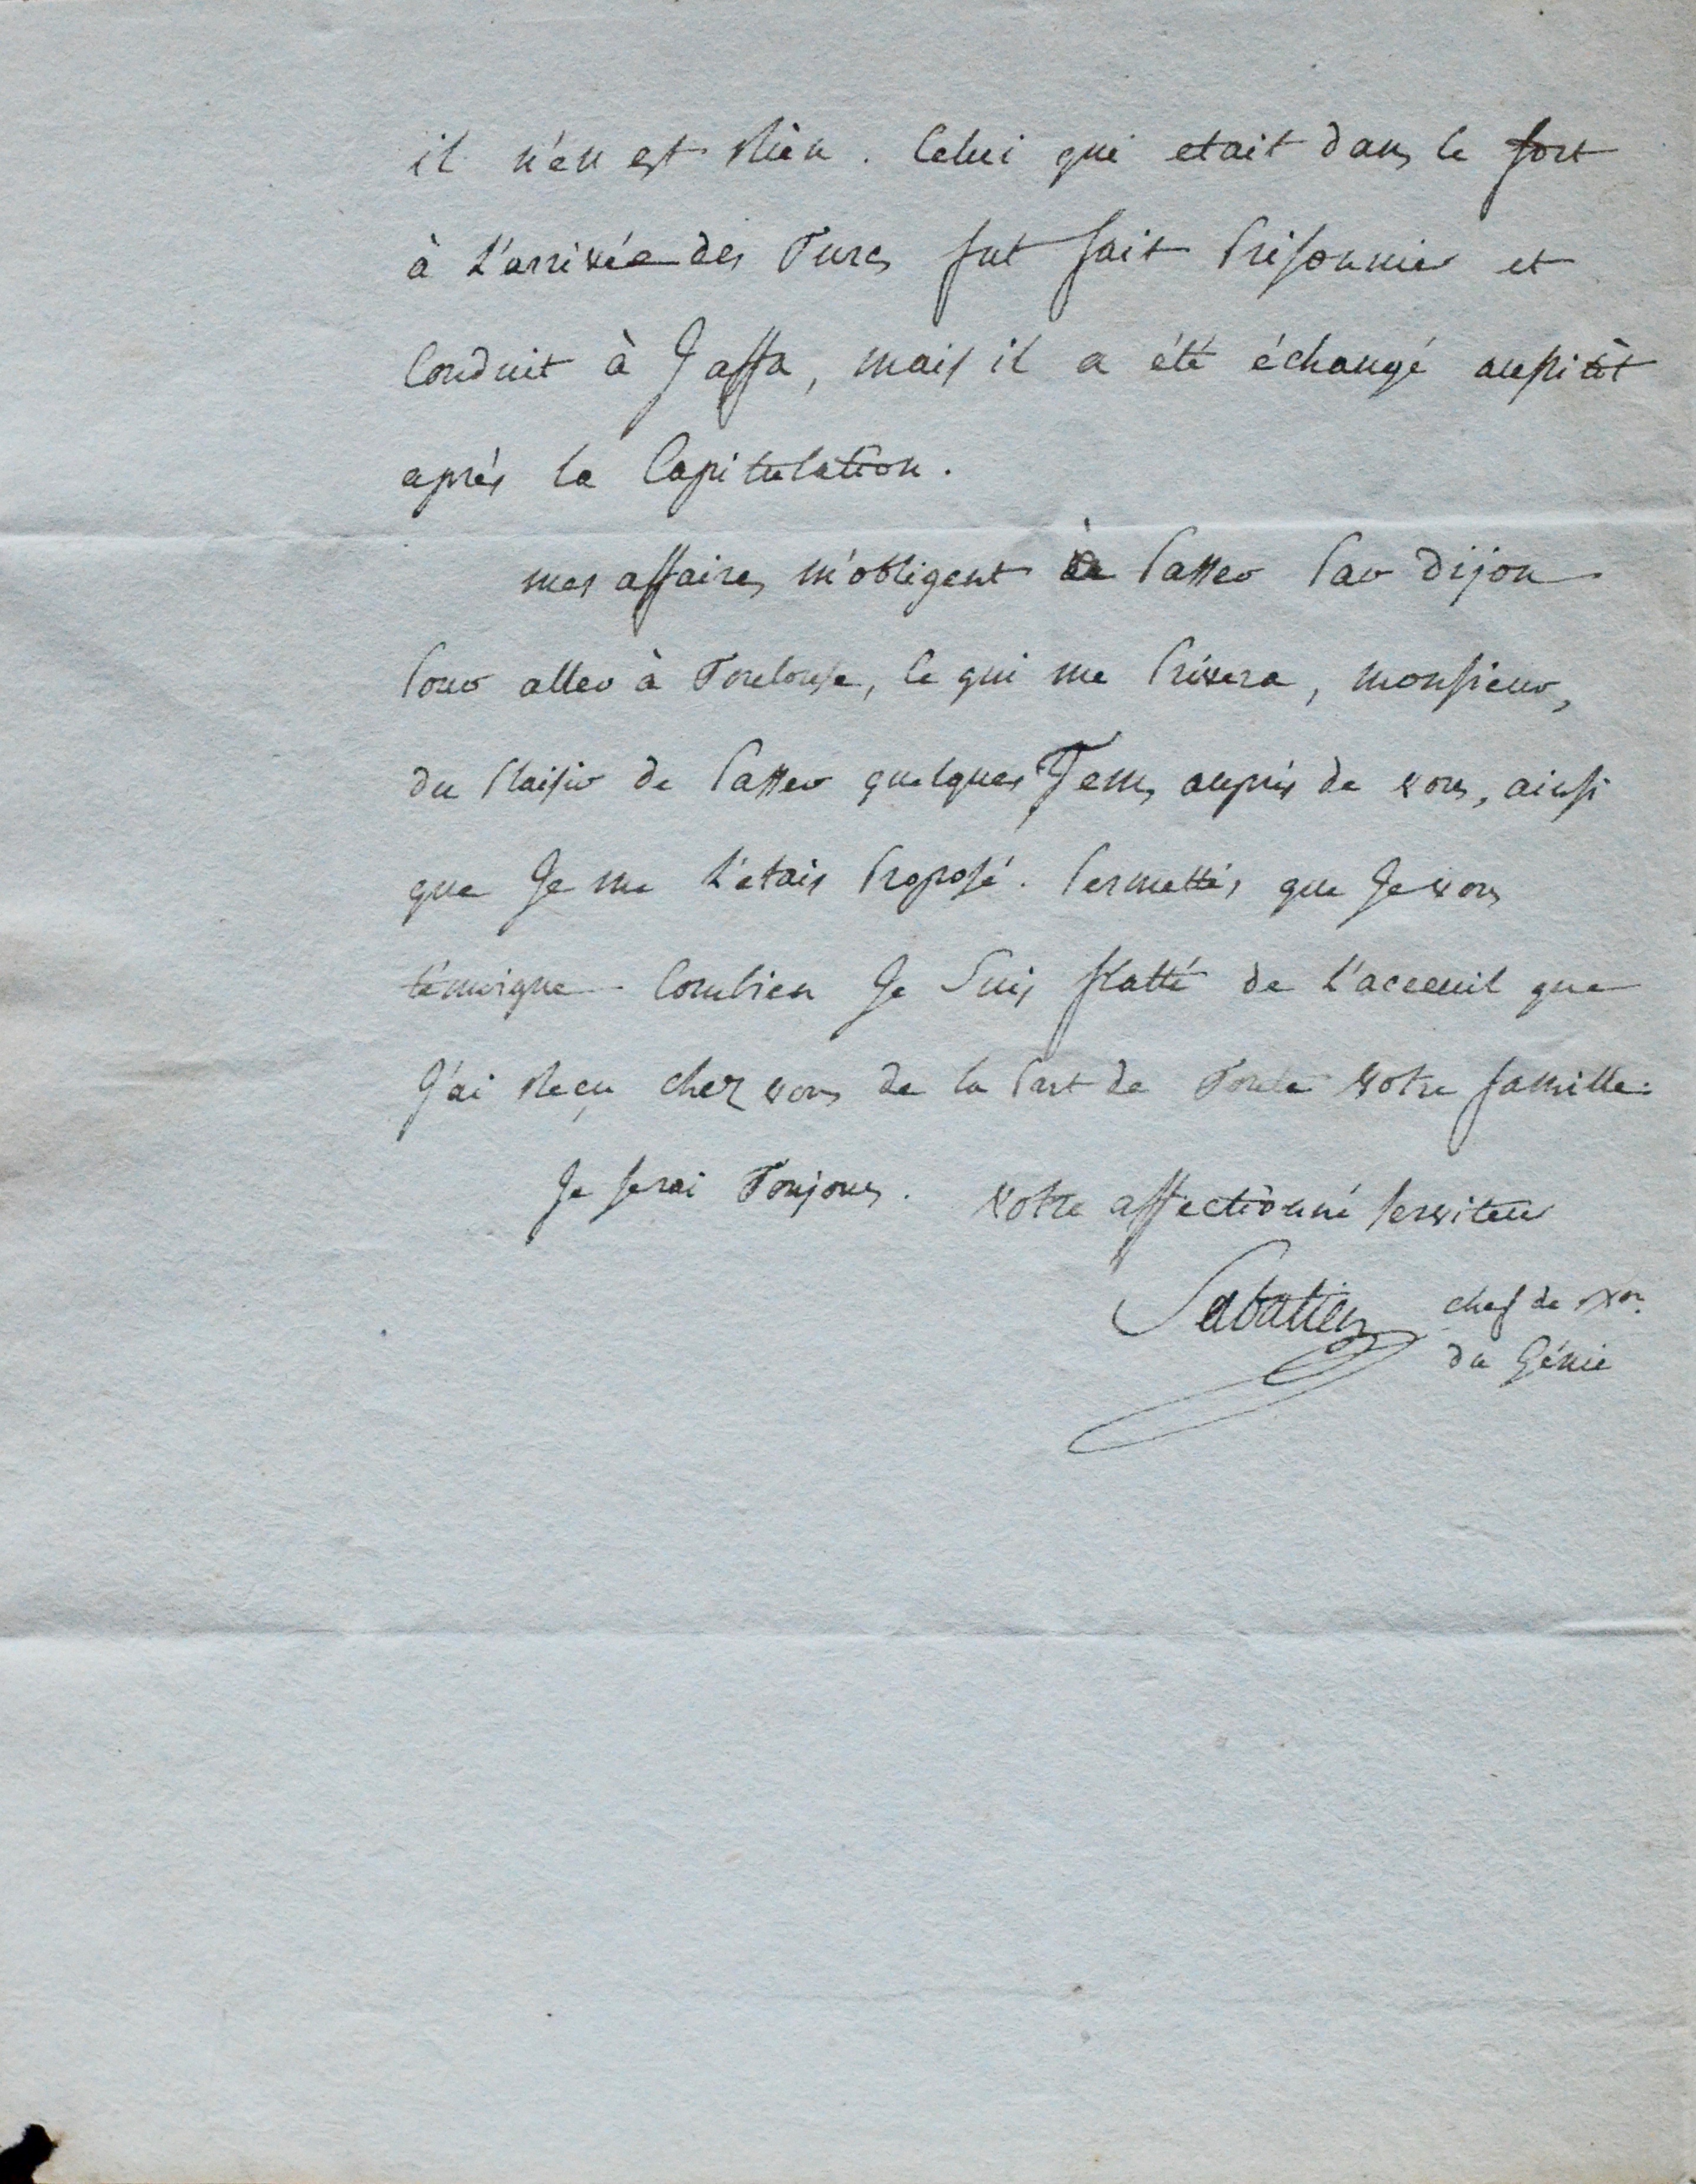 il n'en est Rièn. Celui qui etait dans le fort
à L'arrivée des Turcs fut fait Prisonnier et
Conduit à Jaffa, mais il a été échangé aussitôt
après la Capitulation.
mes affaires m'obligent à Passer Par dijon
Pour aller à Toulouse, Ce qui me Privera, monsieur,
du Plaisir de Passer quelques Tems auprès de vous, ainsi
que Je me L'étais Proposé. Permettés que Je vous
témoigne Combien Je Suis flatté de L'acceuil que
J'ai Reçu chez vous de la Part de Toute votre famille.
Je serai Toujours. votre affectionné serviteur
Sabatier chef de Bon.
du Génie